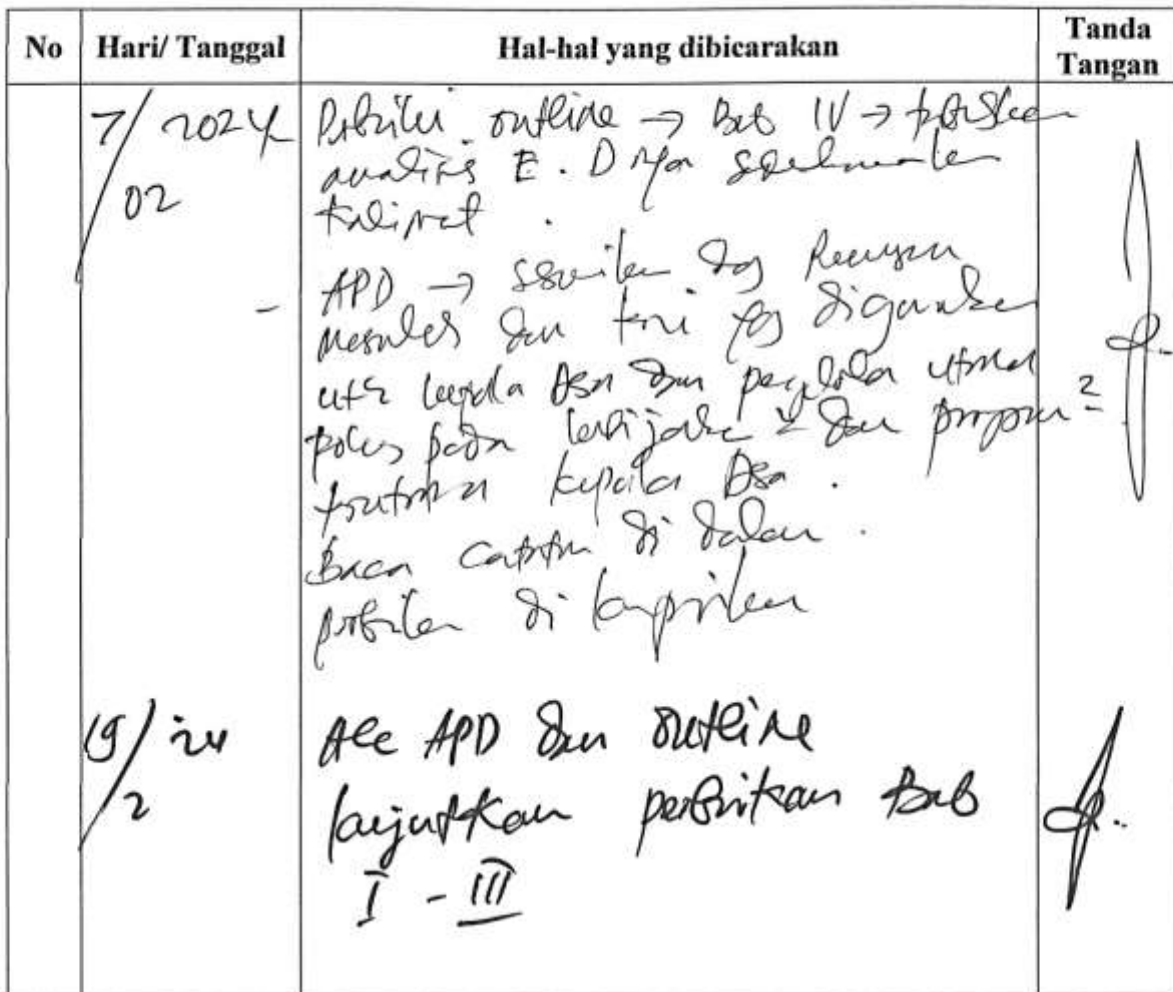 No Hari/ Tanggal Hal-hal yang dibicarakan Tanda Tangan
7/02 2024 Perbaiki outline → Bab IV →
analisis E. D
kalimat .
- APD → sesuaikan dg Rumusan
masalah dan teori yg digunakan
utk kepala Desa dan pengelola
fokus pada kebijakan 2 dan program 2
kepala Desa .
Baca catatan di dalam .
perbaikan di lampirkan
19/2 '24 Acc APD dan outline
lanjutkan perbaikan Bab
I - III